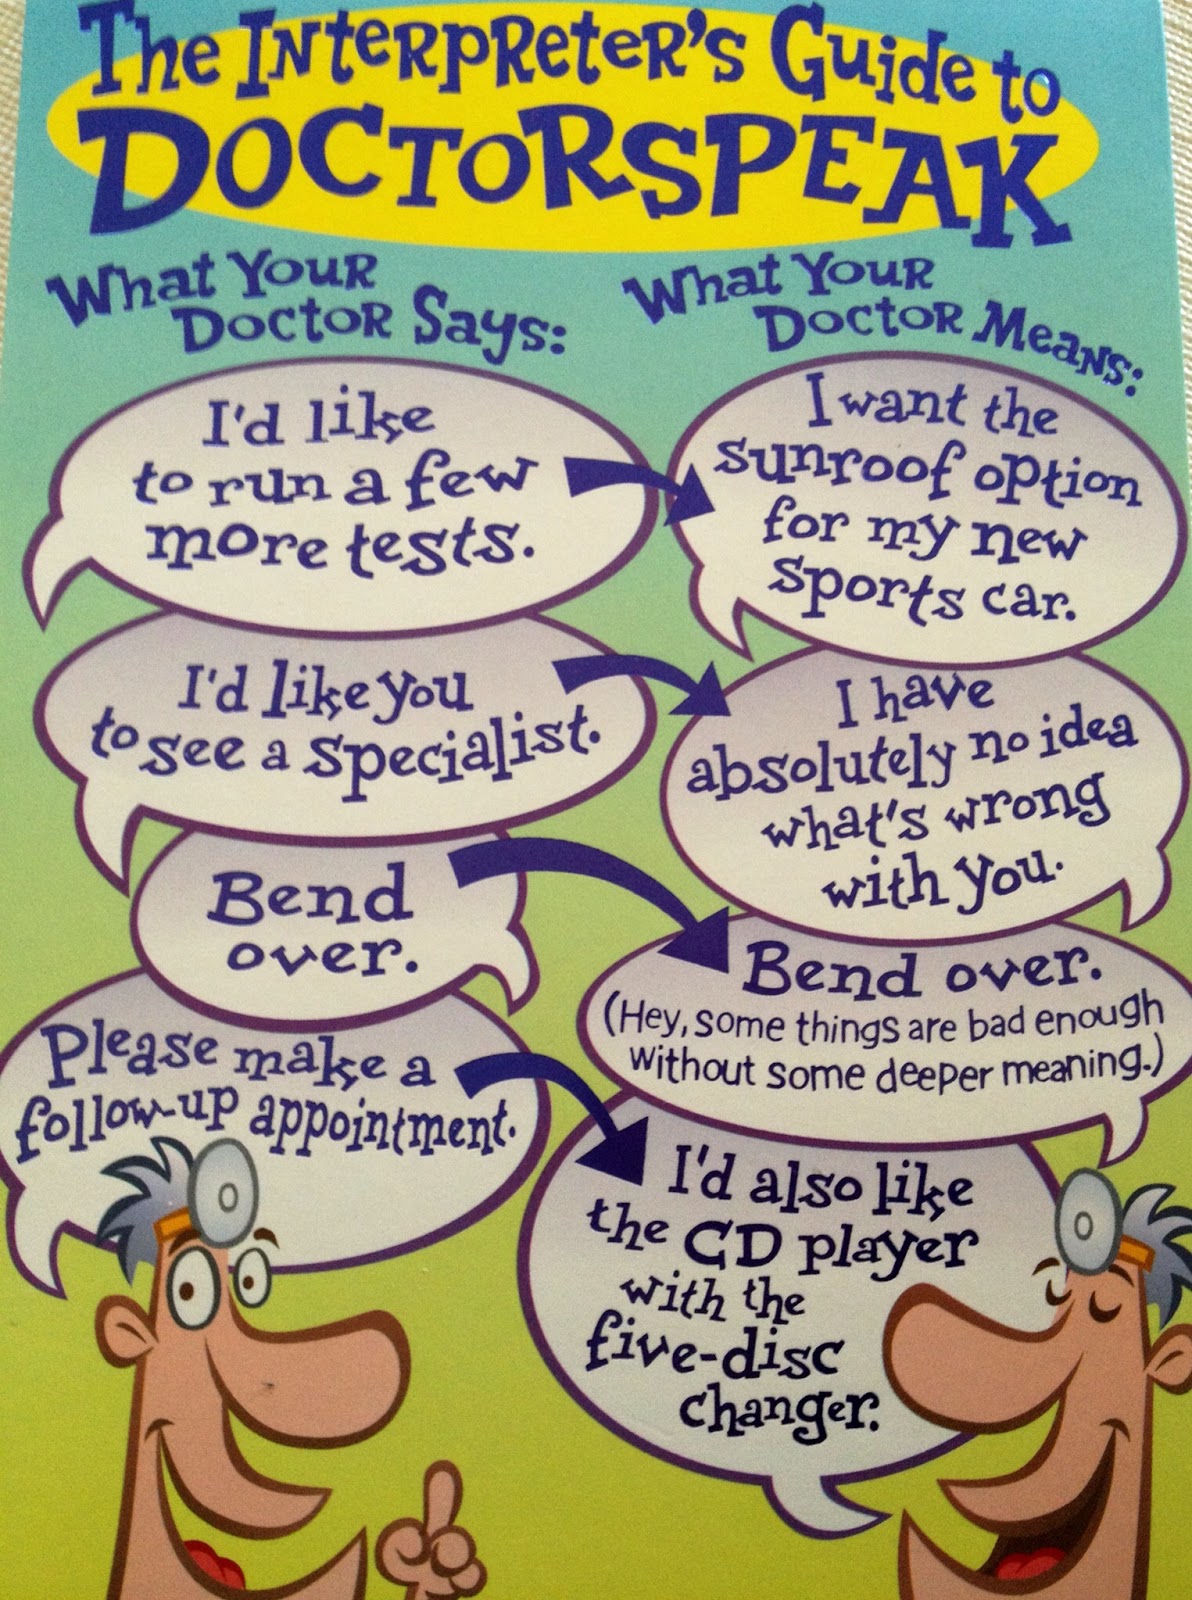 The Interpreter's Guide to
Doctorspeak
What Your
Doctor Says:
What Your
Doctor Means:
I'd like
to run a few
more tests.
I want the
sunroof option
for my new
sports car.
I'd like you
to see a specialist.
I have
absolutely no idea
what's wrong
with you.
Bend
over.
Bend over.
(Hey, some things are bad enough
without some deeper meaning.)
Please make a
follow-up appointment.
I'd also like
the CD player
with the
five-disc
changer.